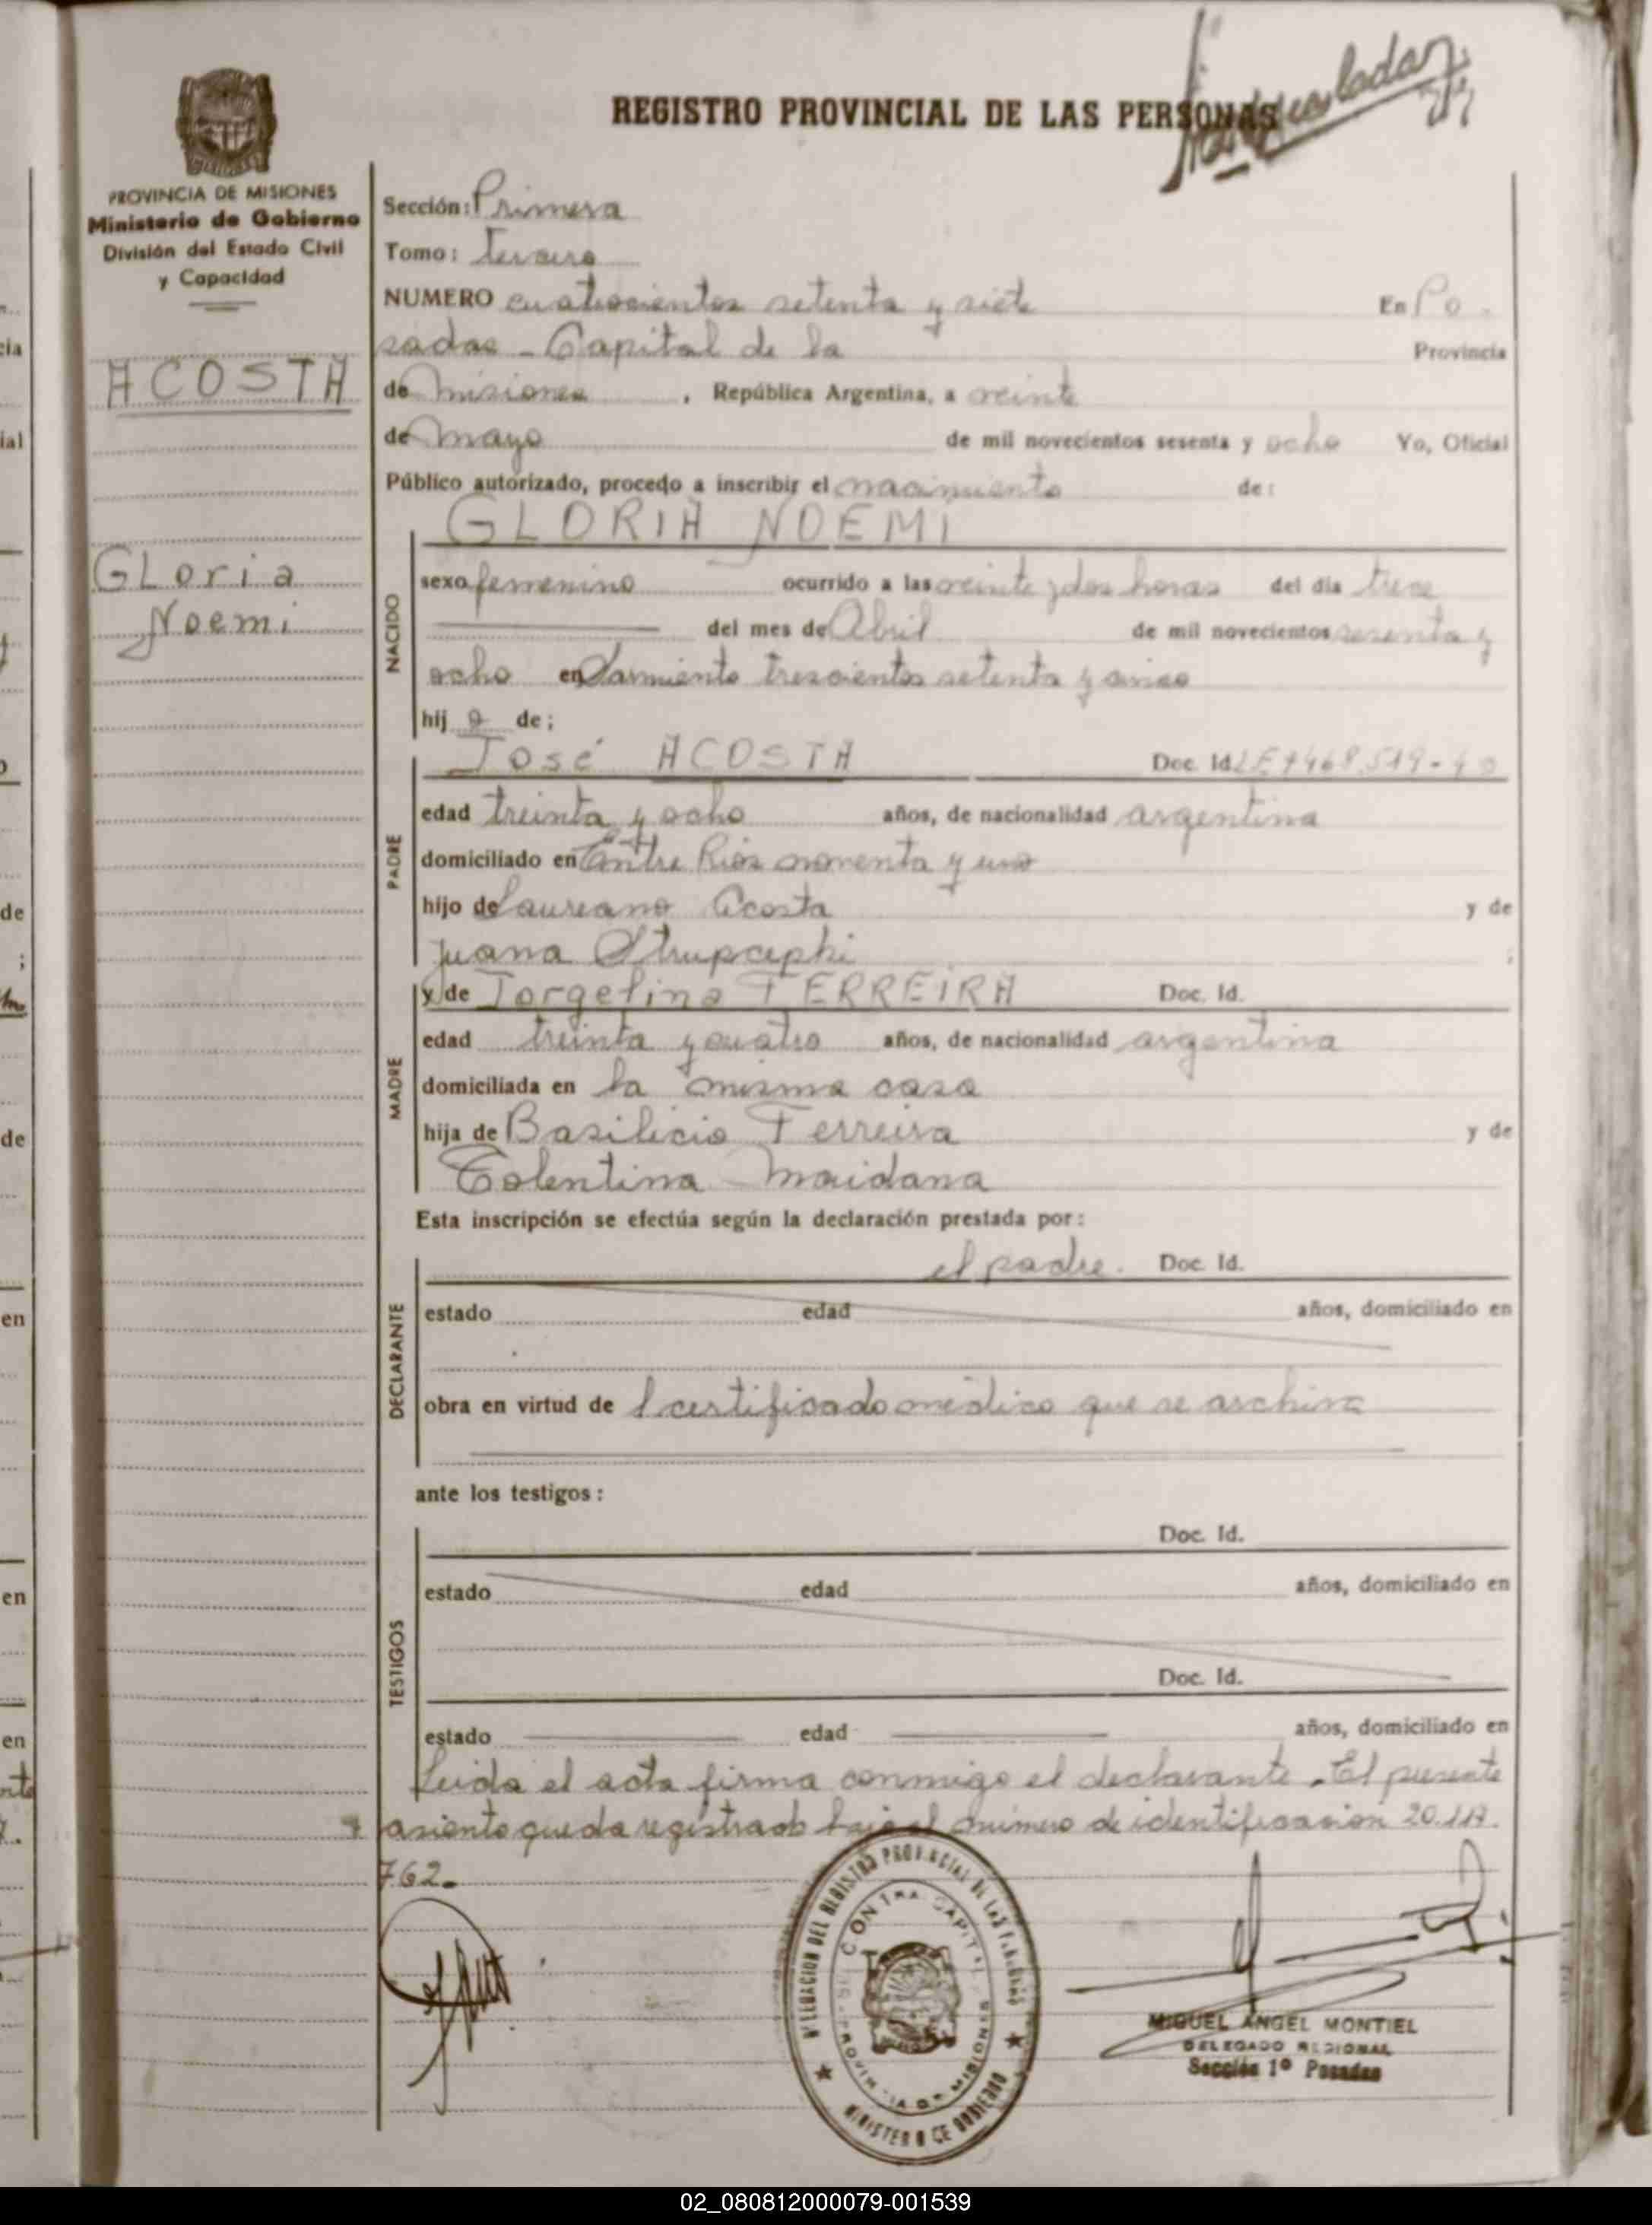 REGISTRO PROVINCIAL DE LAS PERSONAS
PROVINCIA DE MISIONES
Ministerio de Gobierno
División del Estado Civil
y Capacidad
ACOSTA
Gloria
Noemi
Sección: Primera
Tomo: tercero
NUMERO cuatrocientos setenta y siete En Po
sadas - Capital de la Provincia
de misiones, República Argentina, a veinte
de mayo de mil novecientos sesenta y ocho Yo, Oficial
Público autorizado, procedo a inscribir el nacimiento de:
GLORIA NOEMI
NACIDO
sexo femenino ocurrido a las veinte y dos horas del dia trece
del mes de Abril de mil novecientos sesenta y
ocho en Sarmiento trescientos setenta y cinco
hij a de;
José ACOSTA Doc. Id. LE 7468.519-
PADRE
edad treinta y ocho años, de nacionalidad argentina
domiciliado en Entre Rios noventa y uno
hijo de Laureano Acosta y de
Juana ;
MADRE
y de Jorgelina FERREIRA Doc. Id.
edad treinta y cuatro años, de nacionalidad argentina
domiciliada en la misma casa
hija de Basilicio Ferreira y de
Tolentina Maidana
Esta inscripción se efectúa según la declaración prestada por:
el padre. Doc. Id.
DECLARANTE
estado edad años, domiciliado en
obra en virtud de l certificado médico que se archiva
ante los testigos:
Doc. Id.
TESTIGOS
estado edad años, domiciliado en
Doc. Id.
estado edad años, domiciliado en
Leida el acta firma conmigo el declarante. El presente
asiento queda registrado bajo el número de identificación 20.117.
762.
DELEGACION DEL REGISTRO PROVINCIAL DE LAS PERSONAS
MINISTERIO DE GOBIERNO
PROVINCIA DE MISIONES
MIGUEL ANGEL MONTIEL
DELEGADO REGIONAL
Sección 1º Posadas
02_080812000079-001539